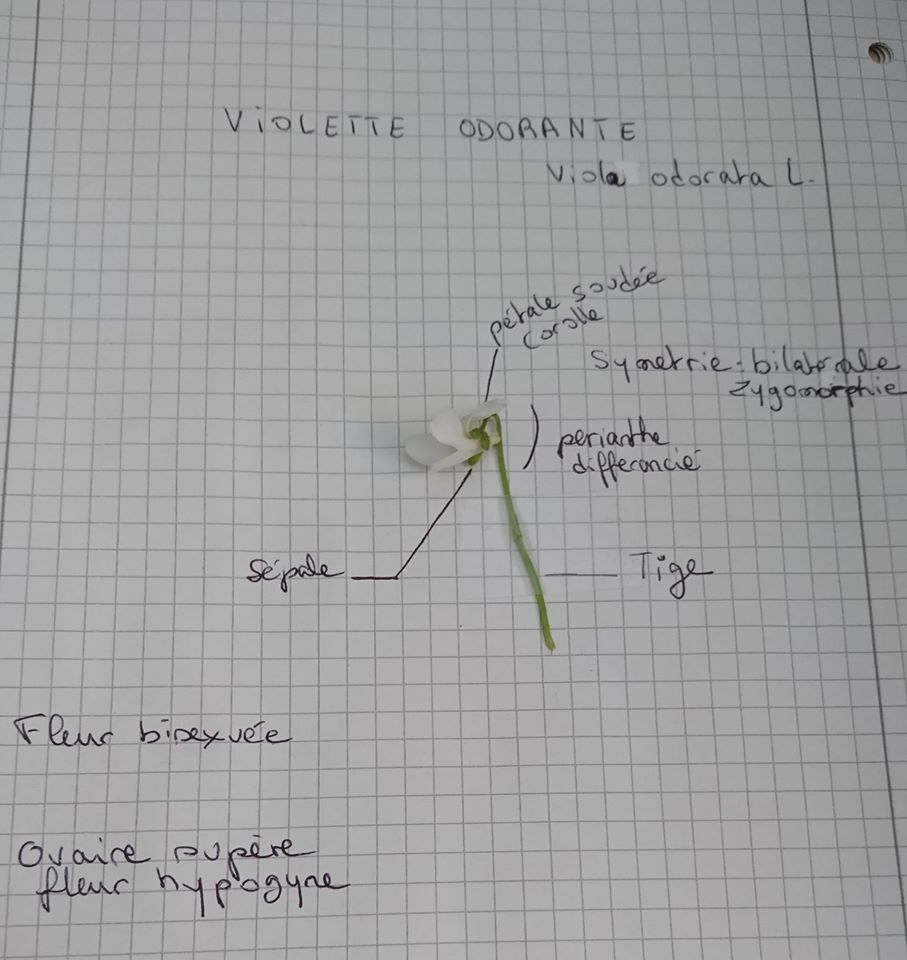 VIOLETTE ODORANTE
Viola odorata L.
pétale soudée
corolle
Symetrie bilatérale
Zygomorphie
perianthe
differencié
Sépale
Tige
Fleur bisexuée
Ovaire supère
fleur hypogyne